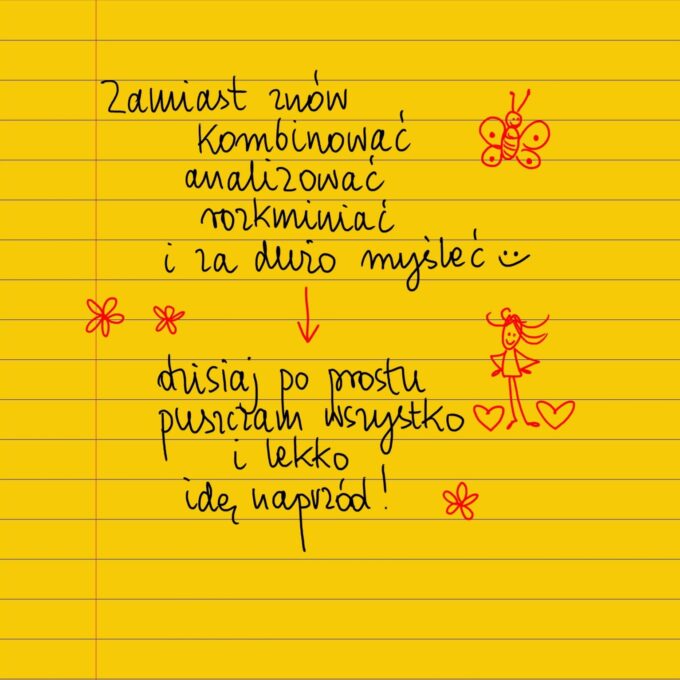 Zamiast znów
kombinować
analizować
rozkminiać
i za dużo myśleć
dzisiaj po prostu
puszczam wszystko
i lekko
idę naprzód!